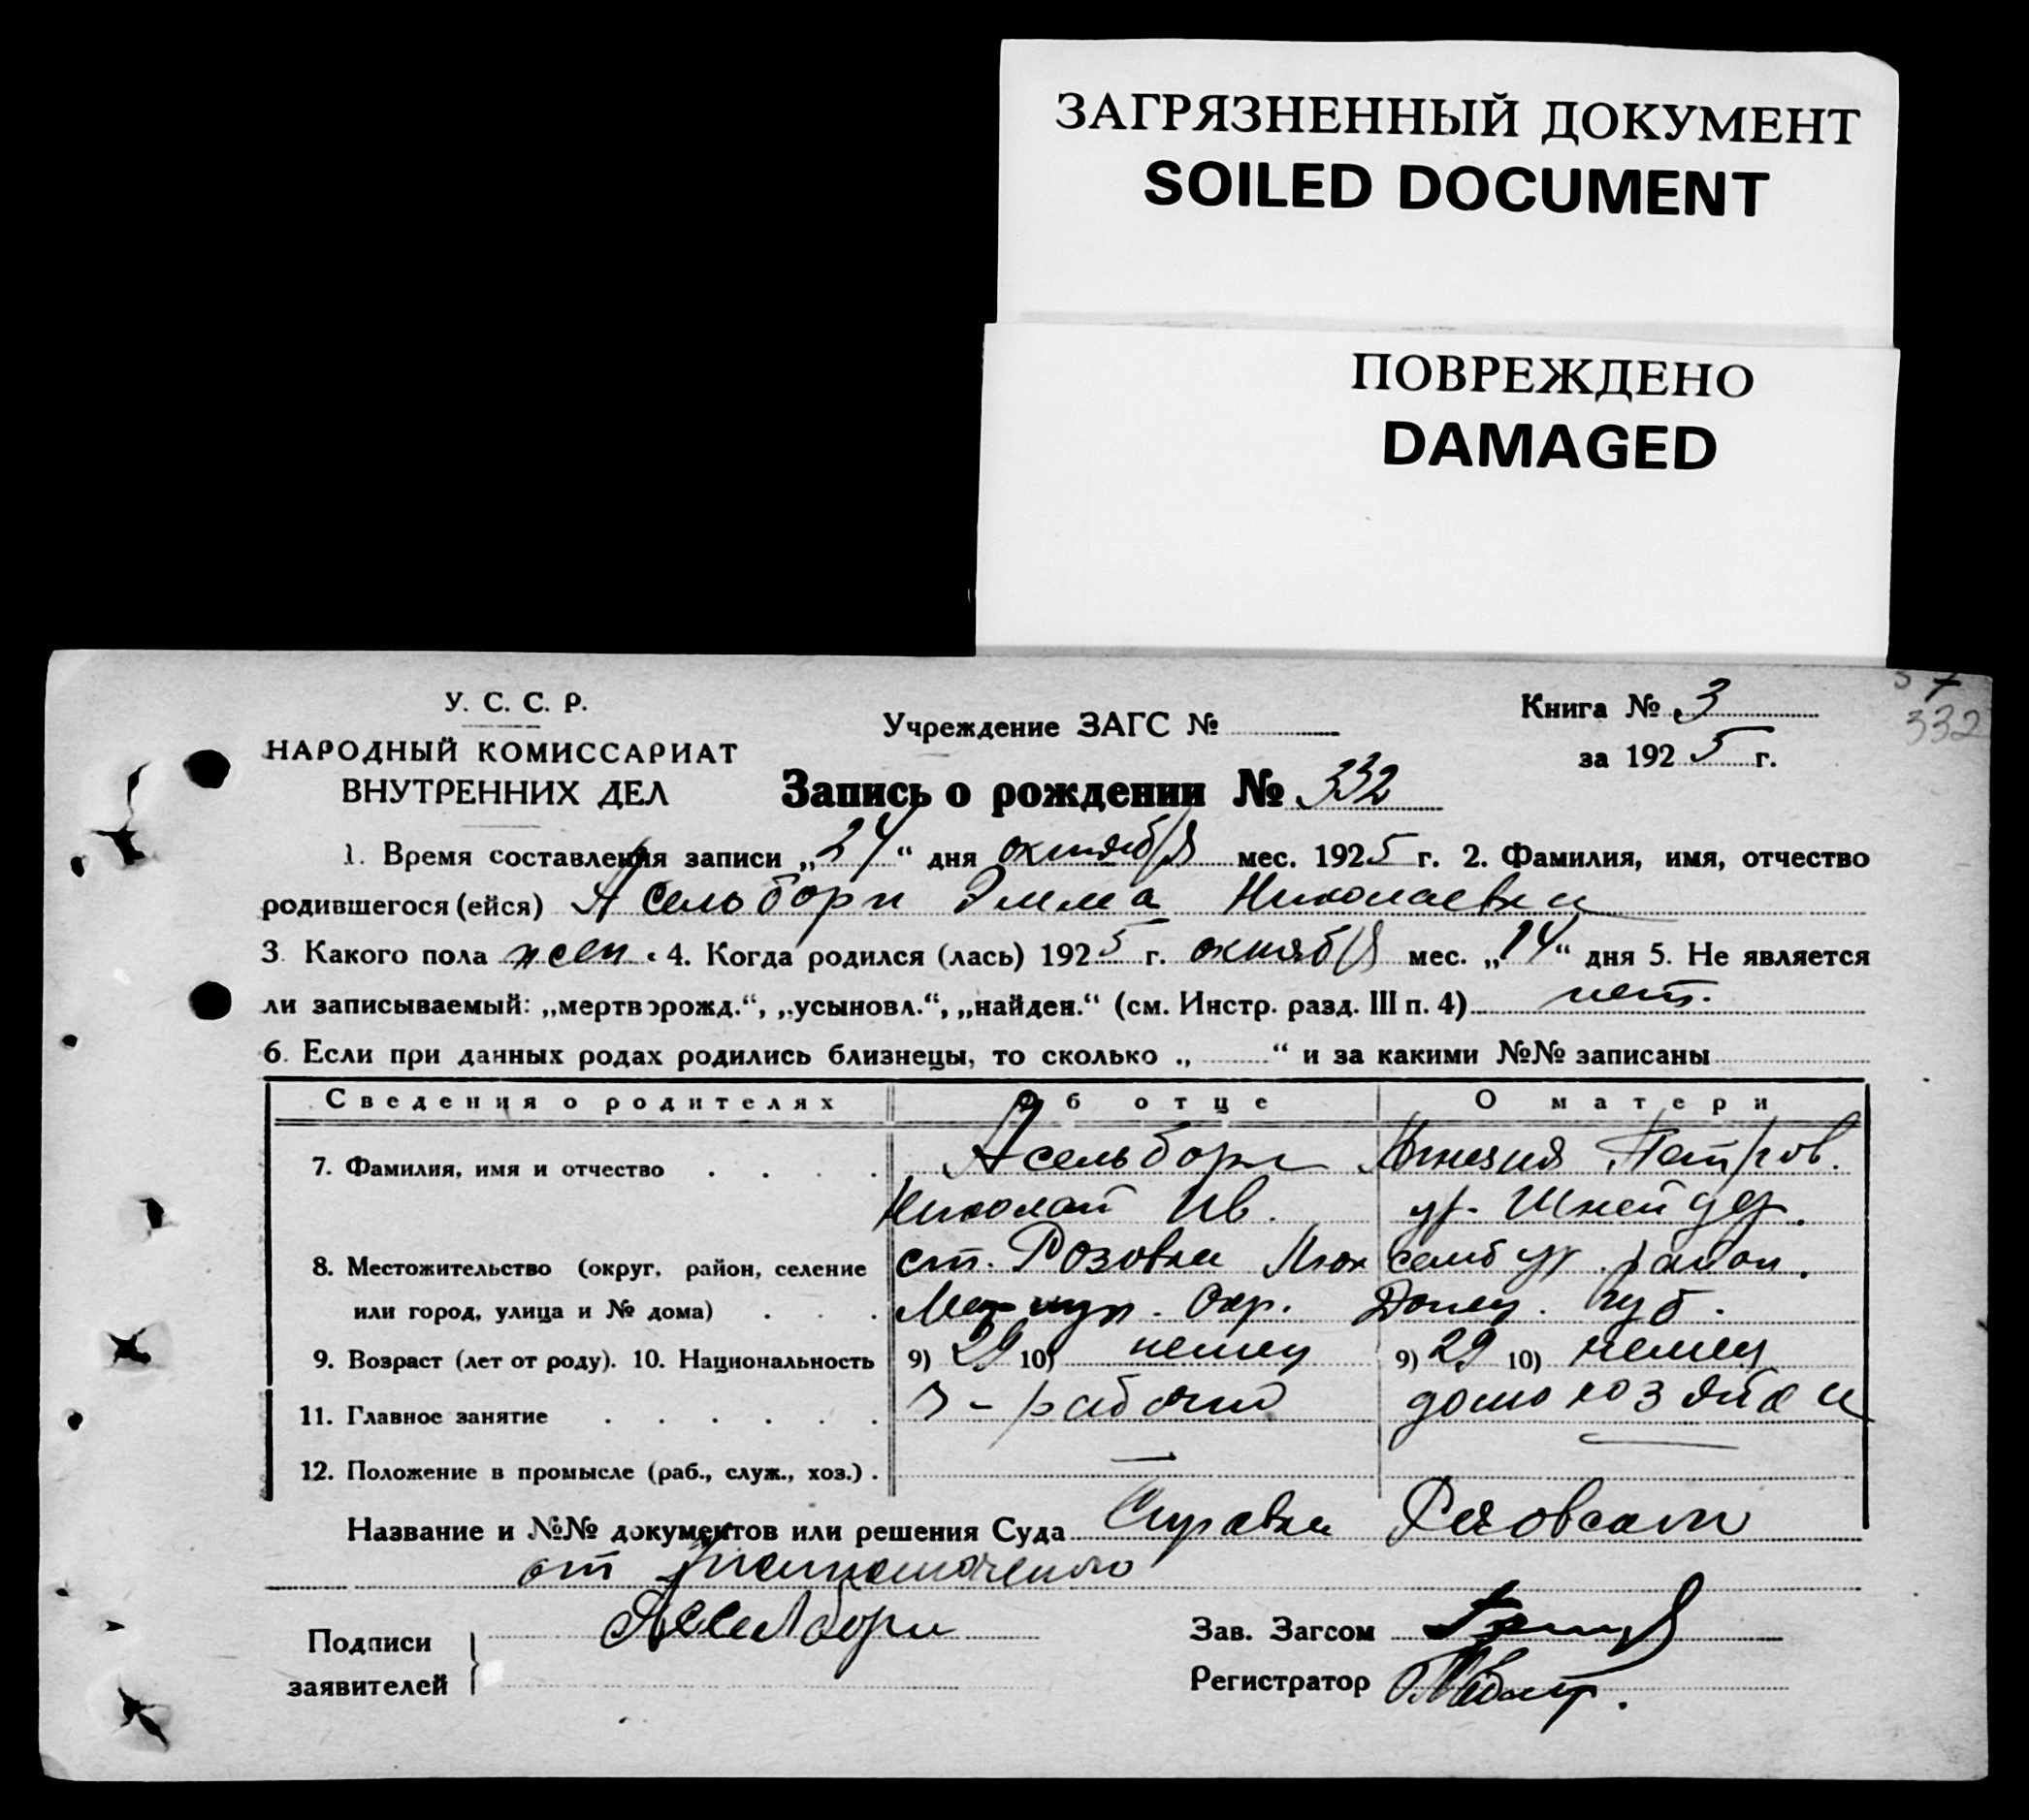 ЗАГРЯЗНЕННЫЙ ДОКУМЕНТ
SOILED DOCUMENT
ПОВРЕЖДЕНО
DAMAGED
У. С. С. Р.
НАРОДНЫЙ КОМИССАРИАТ
ВНУТРЕННИХ ДЕЛ
Учреждение ЗАГС №
Книга № 3
за 1925 г.
332
Запись о рождении № 332
1. Время составления записи „24“ дня октября мес. 1925 г. 2. Фамилия, имя, отчество
родившегося (ейся) Асельборн Эмма Николаевна
3. Какого пола жен. 4. Когда родился (лась) 1925 г. октября мес. „14“ дня 5. Не является
ли записываемый: „мертворожд.“, „усыновл.“, „найден.“ (см. Инстр. разд. III п. 4) нет.
6. Если при данных родах родились близнецы, то сколько „ “ и за какими №№ записаны
Сведения о родителях Об отце О матери
7. Фамилия, имя и отчество Асельборн Петров.
Николай Ив. ур. Шнейдер.
8. Местожительство (округ, район, селение ст. Розовка Люксембург. район.
или город, улица и № дома) Мариуп. Окр. Донец. губ.
9. Возраст (лет от роду). 10. Национальность 9) 29 10) немец 9) 29 10) немец
11. Главное занятие рабочий домохозяйка
12. Положение в промысле (раб., служ., хоз.) . —
Название и №№ документов или решения Суда Справка
от
Подписи
заявителей
Асселборн
Зав. Загсом
Регистратор